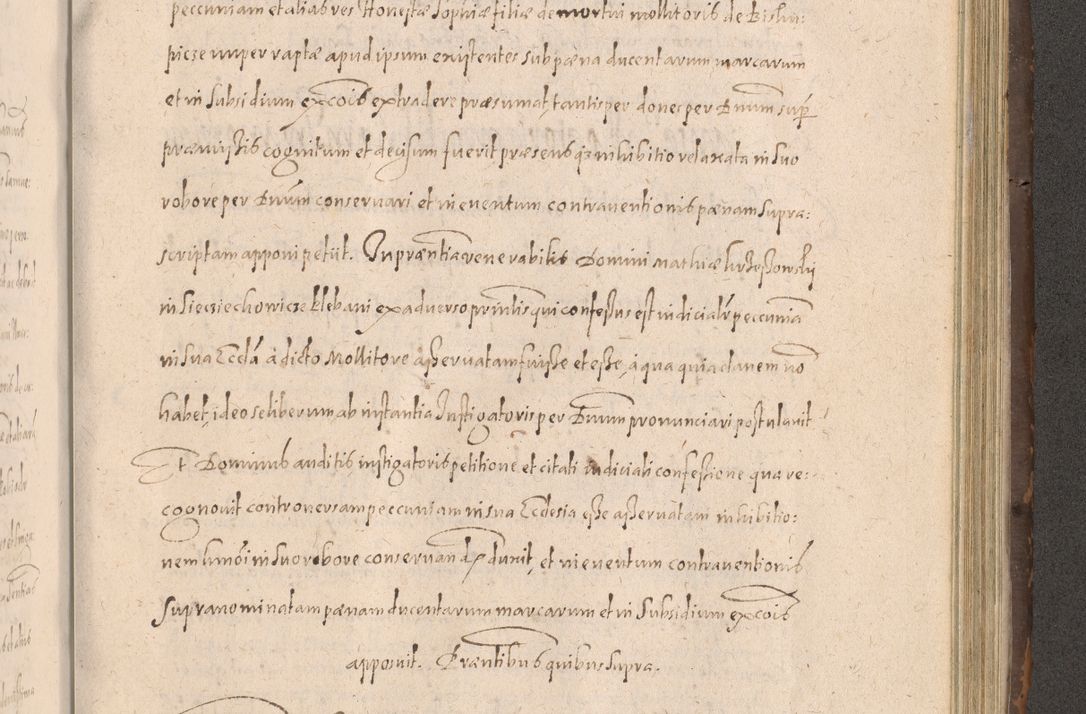 peccuniam et alias res Honestæ Sophiæ filiæ demortui mollitoris de Bisku:
picze nuper raptæ apud ipsum existentes sub pæna ducentarum marcarum
et in subsidium excois extradere præsumat, tantisper donec per Dnum sup
præmissis cognitum et decisum fuerit præsens q; inhibitio relaxata in suo
robore per Dnum conservari et in eventum contraventionis pænam supra:
scriptam apponi petiit. In præntia venerabilis Domini Mathiæ
in Sieciechowicze Plebani ex adverso prntis qui confessus est iudicialr peccuniã
in sua Ecclã a dicto Mollitore asservatam fuisse et esse, a qua quia clavem nõ
habet, ideo se liberum ab instantia Instigatoris per Dnum pronunciari postulavit
Et Dominus auditis instigatoris petitione et citati iudiciali confessione qua re:
cognovit controversam peccuniam in sua Ecclesia esse asservatam inhibitio:
nem in suo robore conservandã duxit, et in eventum contraventionis
supranominatam pænam ducentarum marcarum et in subsidium excois
apposuit. Præntibus quibus supra.